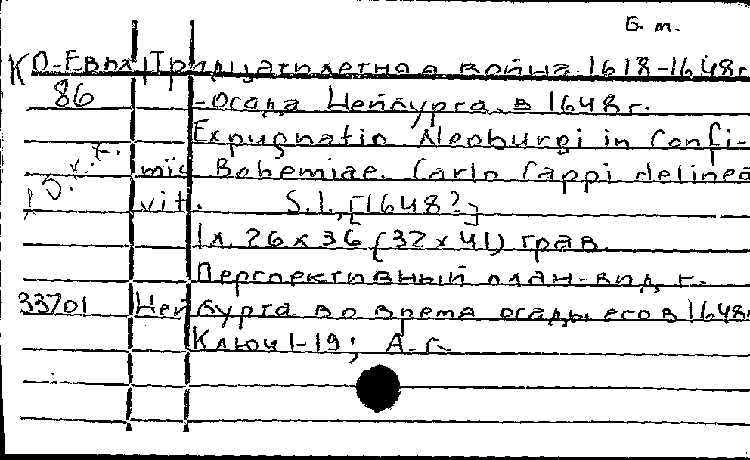 Б. м.
К О-Евр Тридцатилетняя война 1618-1648г
86 -осада Нейбурга в 1648 г.
Expugnatio Neoburgi in Confi-
miis Bohemiae. Carlo Cappi delinea
vit. S.l., [1648?]
1 л. 26 х 36 (32 х 41) грав.
Перспективный план-вид г.
33701 Нейбурга во время осады его в 1648г
Ключ 1-19; А-г.